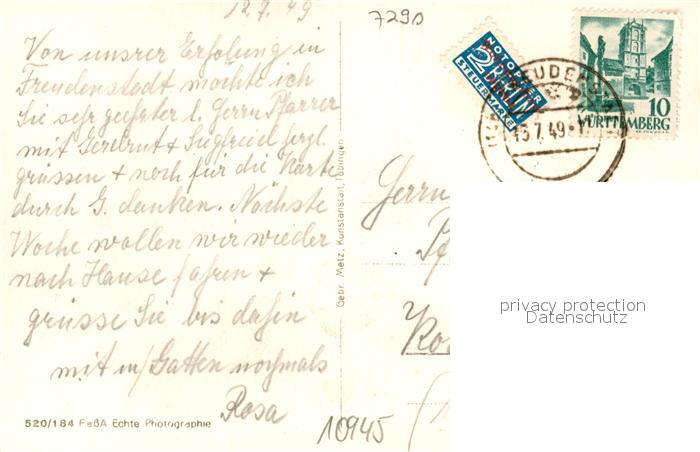 12.7.49
7290
Von unsrer Erholung in
Freudenstadt möchte ich
Sie sehr geehrter l. Herrn Pfarrer
mit Gertrut + Siegfried herzl.
grüssen + noch für die Karte
durch G. danken. Nächste
Woche wollen wir wieder
nach Hause fahren +
grüsse Sie bis dahin
mit m/Gatten nochmals
Rosa
520/184 FeßA Echte Photographie
Gebr. Metz, Kunstanstalt, Tübingen
NOTOPFER
2 BERLIN
STEUERMARKE
15.7.49
10
WÜRTTEMBERG
Herrn
Pf
10945
privacy protection
Datenschutz